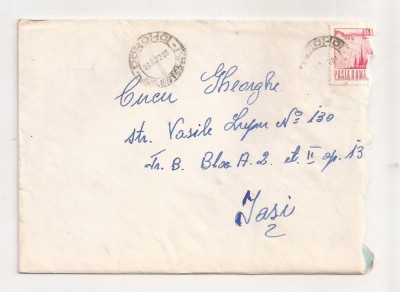 DOROHOI
POSTA ROMANA
Cucu Gheorghe
str. Vasile Lupu No 130
Tr. B. Bloc A. 2. et. II ap. 13
Iasi
2